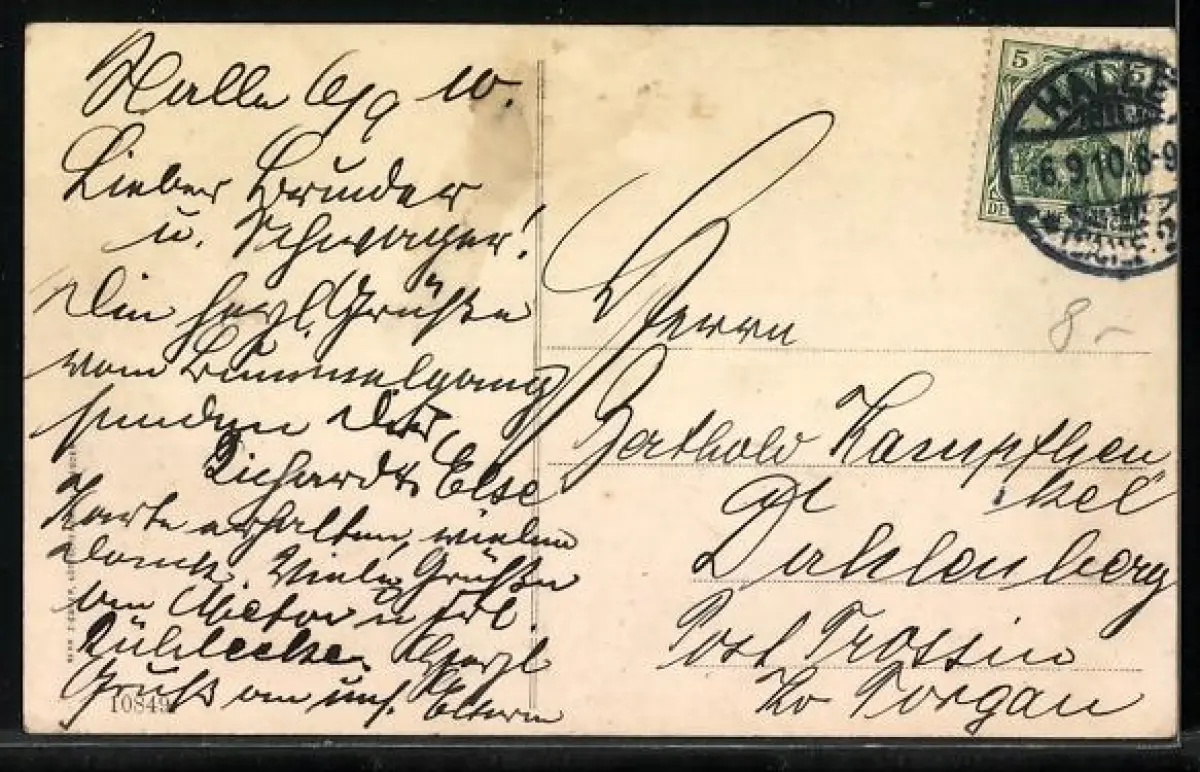 Halle 6/9 10.
Lieber Bruder
u. Schwager!
Die herzl. Grüße
vom Bummelgang
senden Dir
Richard u. Else
Karte erhalten, vielen
Dank. Viele Grüße
an Victor u. Frl.
Herzl
Gruß an uns. Eltern
10849
5
5
HALLE
6.9.10.8-9
Herrn
Berthold
Dahlenberg
Post Trossin
Kr Torgau
8-